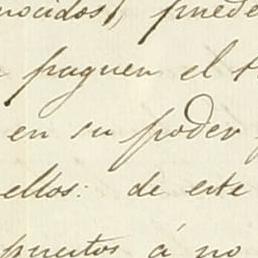 nocidos), puede
paguen el
en su poder
ellos: de este
puestos á no